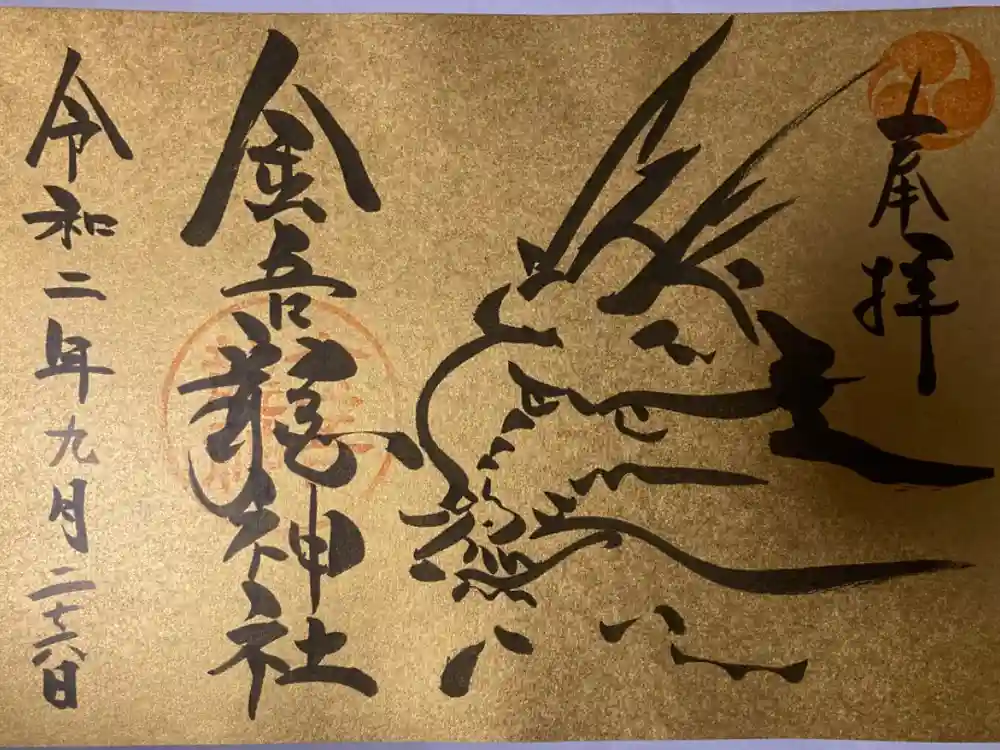 奉拝
金吾龍神社
令和二年九月二十六日